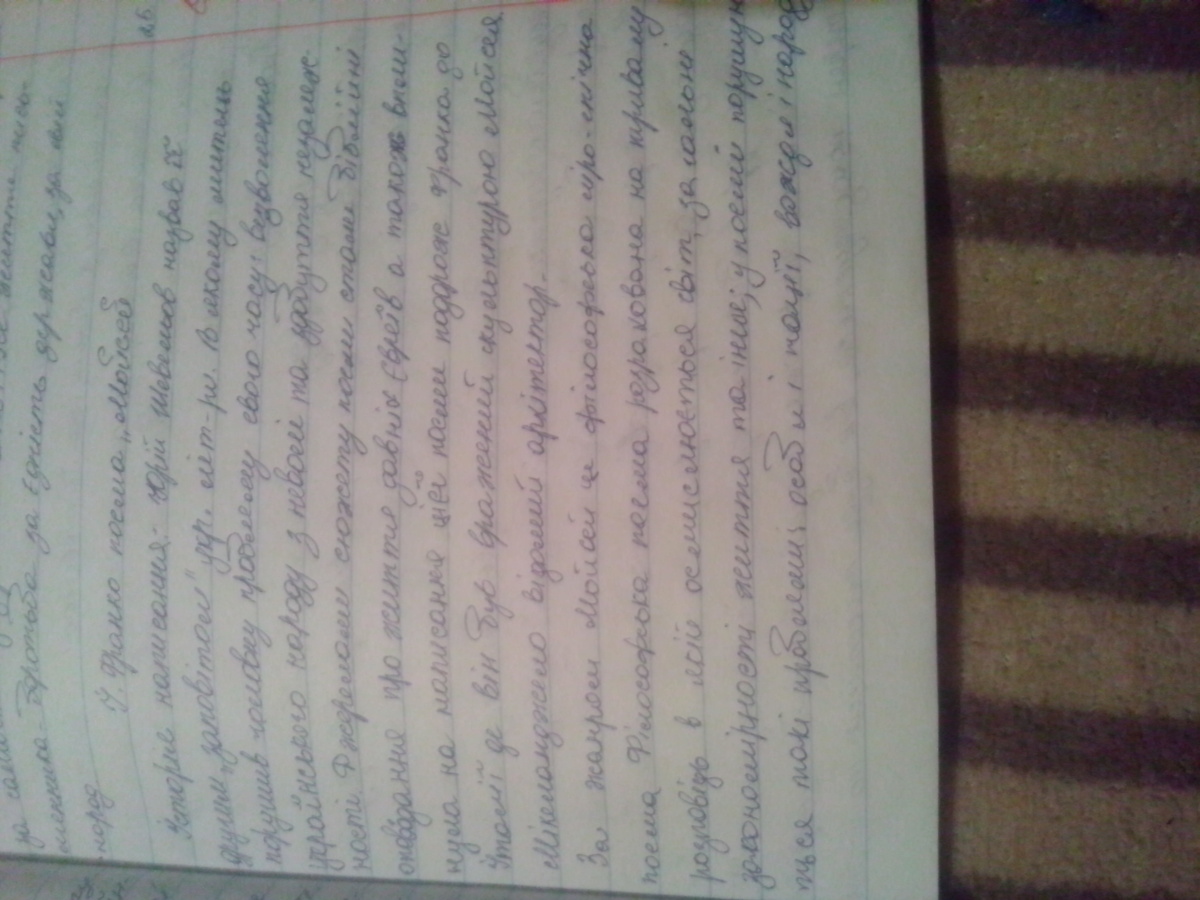 за
боротьба за єдність держави, за свій
народ
І. Франко поема „Мойсей"
Історія написання: Юрій Шевельов назвав її
другим „заповітом" укр. літ-ри. В якому митець
порушив головну проблему свого часу: визволення
українського народу з неволі та здобуття незалеж-
ності. Джерелом сюжету поеми стали біблійні
оповідання про життя давніх євреїв а також впли-
нула на написання цієї поеми подорож Франка до
Італії де він був вражений скульптурою Мойсея
Мікеланджело відомий архітектор.
За жанром Мойсей це філософська ліро-епічна
поема Філософська поема розрахована на тривалу
розповідь в ній осмислюється світ, загальні
закономірності життя та інше; у поемі порушую
ться такі проблеми: особи і нації, вождя і народ